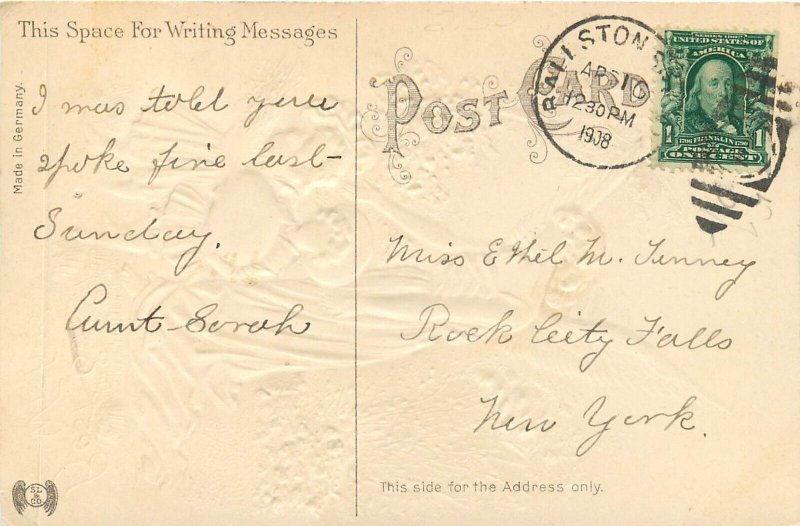 This Space For Writing Messages
Made in Germany.
I was told you
spoke fine last
Sunday.
Aunt Sarah
SL & CO
POST CARD
BALLSTON
APR 10
1230PM
1908
SERIES 1902
UNITED STATES OF
AMERICA
1 1706 FRANKLIN 1790 1
POSTAGE
ONE CENT
Miss Ethel M. Tenney
Rock City Falls
New York.
This side for the Address only.